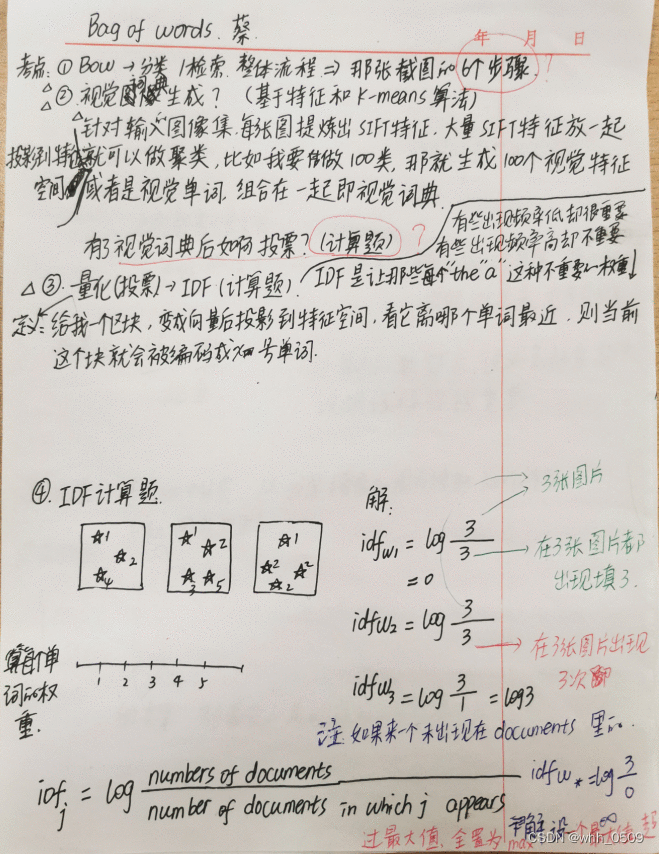 Bag of words. 蔡.
年 月 日
考点: ① Bow → 分类 / 检索. 整体流程 ⇒ 那张截图的6个步骤. ?
△ ② 视觉词典生成? (基于特征和K-means算法)
针对输入图像集, 每张图提炼出SIFT特征. 大量SIFT特征放一起
投影到特征空间 就可以做聚类, 比如我要做100类, 那就生成100个视觉特征
或者是视觉单词. 组合在一起即视觉词典.
有些出现频率低却很重要
有了视觉词典后如何投票? (计算题) ? 有些出现频率高却不重要
△ ③. 量化(投票) → IDF (计算题). IDF是让那些每个"the""a"这种不重要的权重↓
定义: 给我一个区块, 变成向量后投影到特征空间, 看它离哪个单词最近. 则当前
这个块就会被编码成 号单词.
④. IDF计算题.
1 2 4
1 2 3 5
1 2 2 2
解:
idfw1 = log 3/3
= 0
3张图片
在3张图片都出现填3.
idfw2 = log 3/3
在3张图片出现3次
算每个单词的权重.
1 2 3 4 5
idfw3 = log 3/1 = log3
注: 如果来一个未出现在documents里的.
idfw* = log 3/0
idfj = log numbers of documents / number of documents in which j appears
∞
过最大值, 全置为max
CSDN @whh_0509